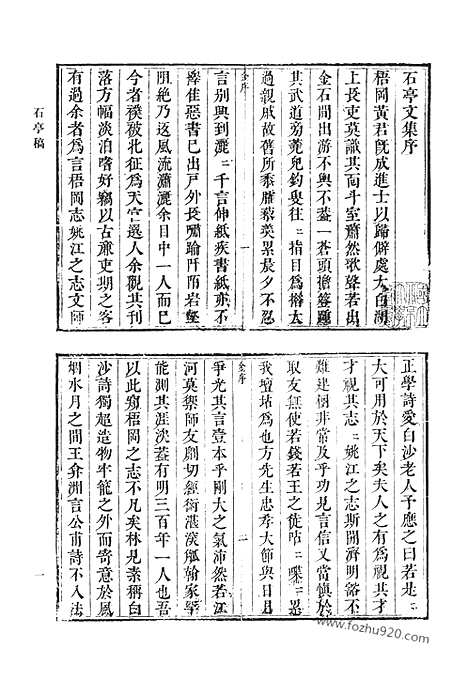 石亭文集序
梧岡黃君旣成進士以歸僻處大白湖
上長吏莫識其面斗室蕭然歌聲若出
金石間出游不輿不蓋一蒼頭擔簦躧
其武道旁麂兒釣叟往〻指目爲措大
過親戚故舊所黍臛藜羮累晨夕不忍
言别興到漉〻千言伸紙疾書紙亦不
擇佳惡書已出戸外長嘯踰阡陌岩壑
朋絶乃返風流瀟灑余目中一人而已
今者襆被北征爲天官選人余觀其刊
落方幅淡泊嗜好竊以古廉吏期之客
有過余者爲言梧岡志姚江之志文師
正學詩愛白沙老人予應之曰若是〻
大可用於天下矣夫人之有爲視其才
才視其志〻姚江之志斯開濟明豁不
難建樹非常及乎功見言信又當愼於
取友無使若錢若王之徒呫〻喋〻累
我壇坫爲也方先生忠孝大節與日月
爭光其言壹本乎剛大之氣沛然若江
河莫禦師友剴切經術湛深觚翰家罕
能測其涯涘蓋有明三百年一人也吾
以此窺梧岡之志不凡矣林見素稱白
沙詩獨超造物牢籠之外而寄意於風
烟水月之間王弇洲言公甫詩不入法
余序
一
余序
二
石亭稿
一
www.fozhu920.com